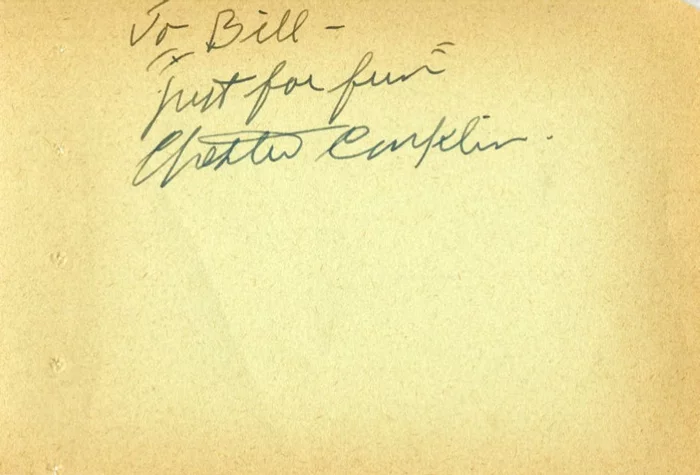 To Bill -
"just for fun"
Chester Conklin.